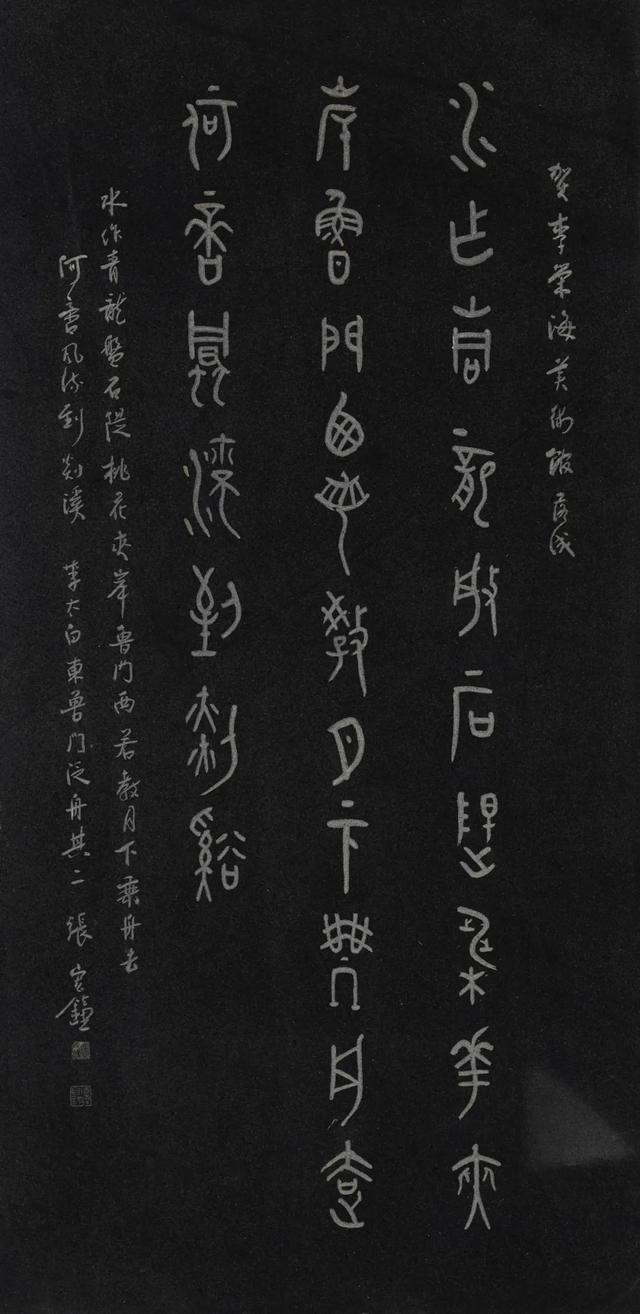 賀李榮海美術館落成
水作青龍盤石隄桃華夾
岸魯門西若教月下乘舟去
何啻風流到剡谿
水作青龍盤石隄桃花夾岸魯門西若教月下乘舟去
何啻風流到剡溪 李太白東魯門泛舟其二 張